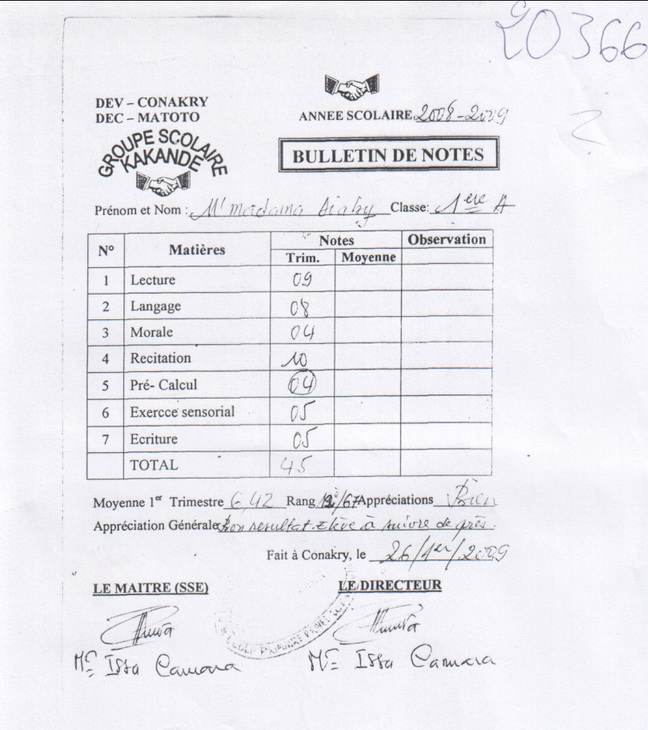 20366
DEV – CONAKRY
DEC – MATOTO
GROUPE SCOLAIRE
KAKANDE
ANNEE SCOLAIRE 2008-2009
BULLETIN DE NOTES
Prénom et Nom : M'madama Diaby Classe: 1ère A
N° Matières Notes Observation
Trim. Moyenne
1 Lecture 09
2 Langage 08
3 Morale 04
4 Recitation 10
5 Pré- Calcul 04
6 Exercce sensorial 05
7 Ecriture 05
TOTAL 45
Moyenne 1er Trimestre 6,42 Rang /67 Appréciations Bien
Appréciation Générale Bon resultat élève à suivre de près.
Fait à Conakry, le 26/1er/2009
LE MAITRE (SSE) LE DIRECTEUR
Mr Issa Camara Mr Issa Camara